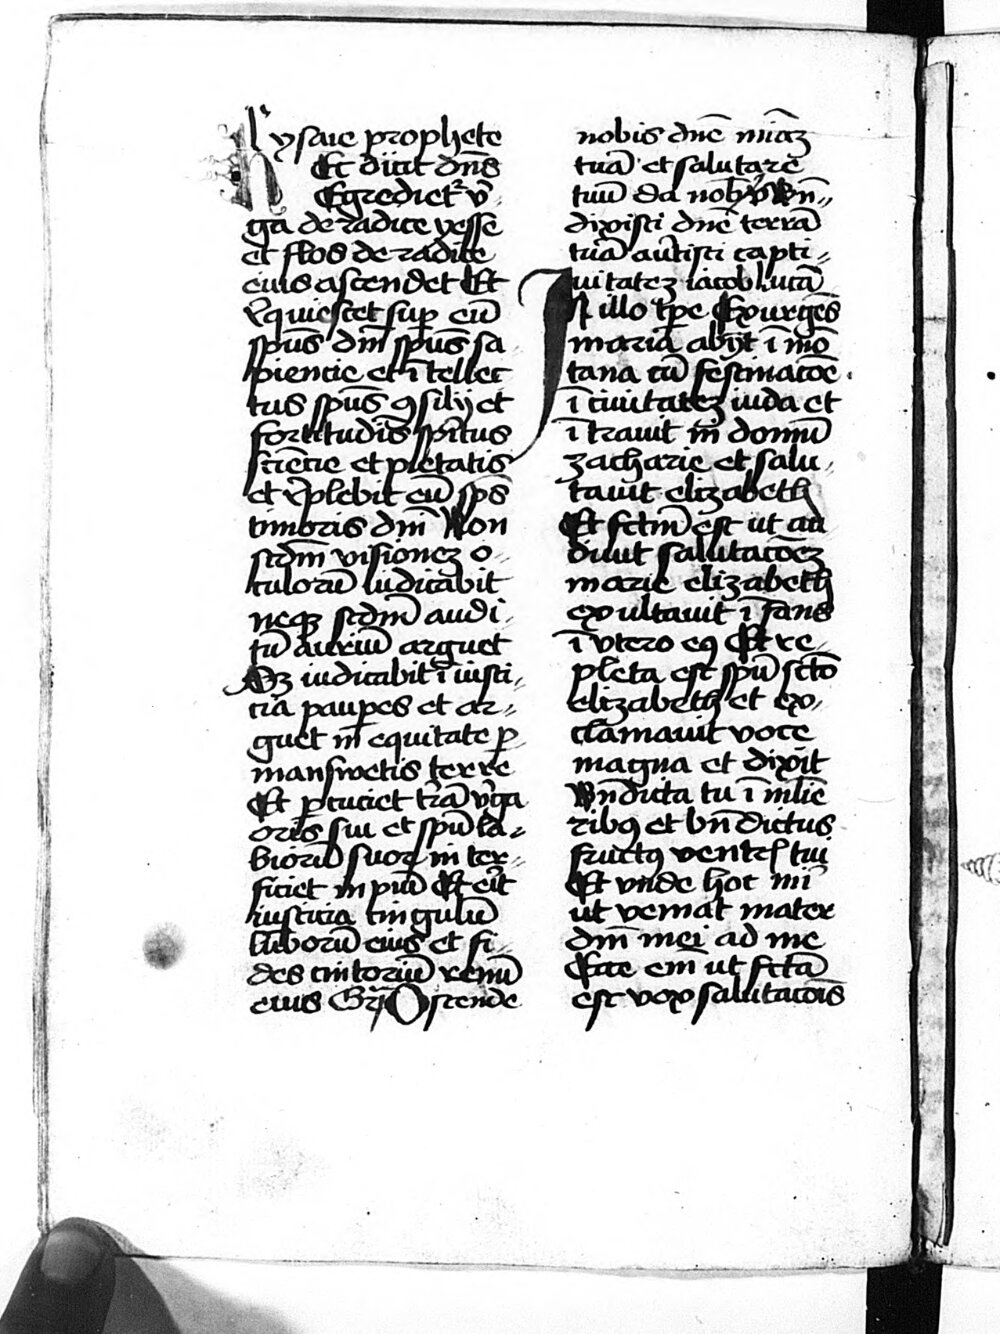 l' ysaie prophete
Et dicit dn̄s
Egrediet᷑ v̓
ga de radice yesse
et flos de radice
eius ascendet Et
rq̄uiescet sup eū
spūs dn̄i spūs sa
piencie et ītellec
tus spūs ꝯsilij et
fortitudīs spītus
sciēcie et pietatis
et rēplebit eū sp̄s
timoris dn̄i Non
scd̄m visionez o
culorū iudicabit
neqꝫ scd̄m audi
tū auriū arguet
Sꝫ iudicabit ī iusti
cia paupes et ar
guet in equitate p̄
mansuetis terre
Et pcuciet t̄rā v̓ga
oris sui et spū la
biorū suoꝝ inter
ficiet impiū Et er̄it
iusticia cingulū
lūborū eius et fi
des cinctoriū renū
eius Gr̄ Ostende
nobis dn̄e mīaꝫ
tuā et salutare
tuū da nob̄ v̓ Bn̄
dixisti dn̄e terrā
tuā auertisti capti
uitatez iacob lucā
In illo tp̄e Exurgēs
maria abijt ī mō
tana cū festinacōe
ī ciuitatez iuda et
ī trauit in domū
zacharie et salu
tauit elizabeth
Et fctm̄ est ut au
diuit salutacōeꝫ
marie elizabeth
exultauit ī fans
ī vtero eꝯ Et re
pleta est spū scto
elizabeth et ex
clamauit voce
magna et dixīt
Bn̄dicta tu ī mlie
ribꝯ et bn̄dictus
fructꝯ ventrꝭ tui
Et vnde hoc mī
ut veniat mater
dn̄i mei ad me
Ecce em̄ ut fctā
est vox salutacōis